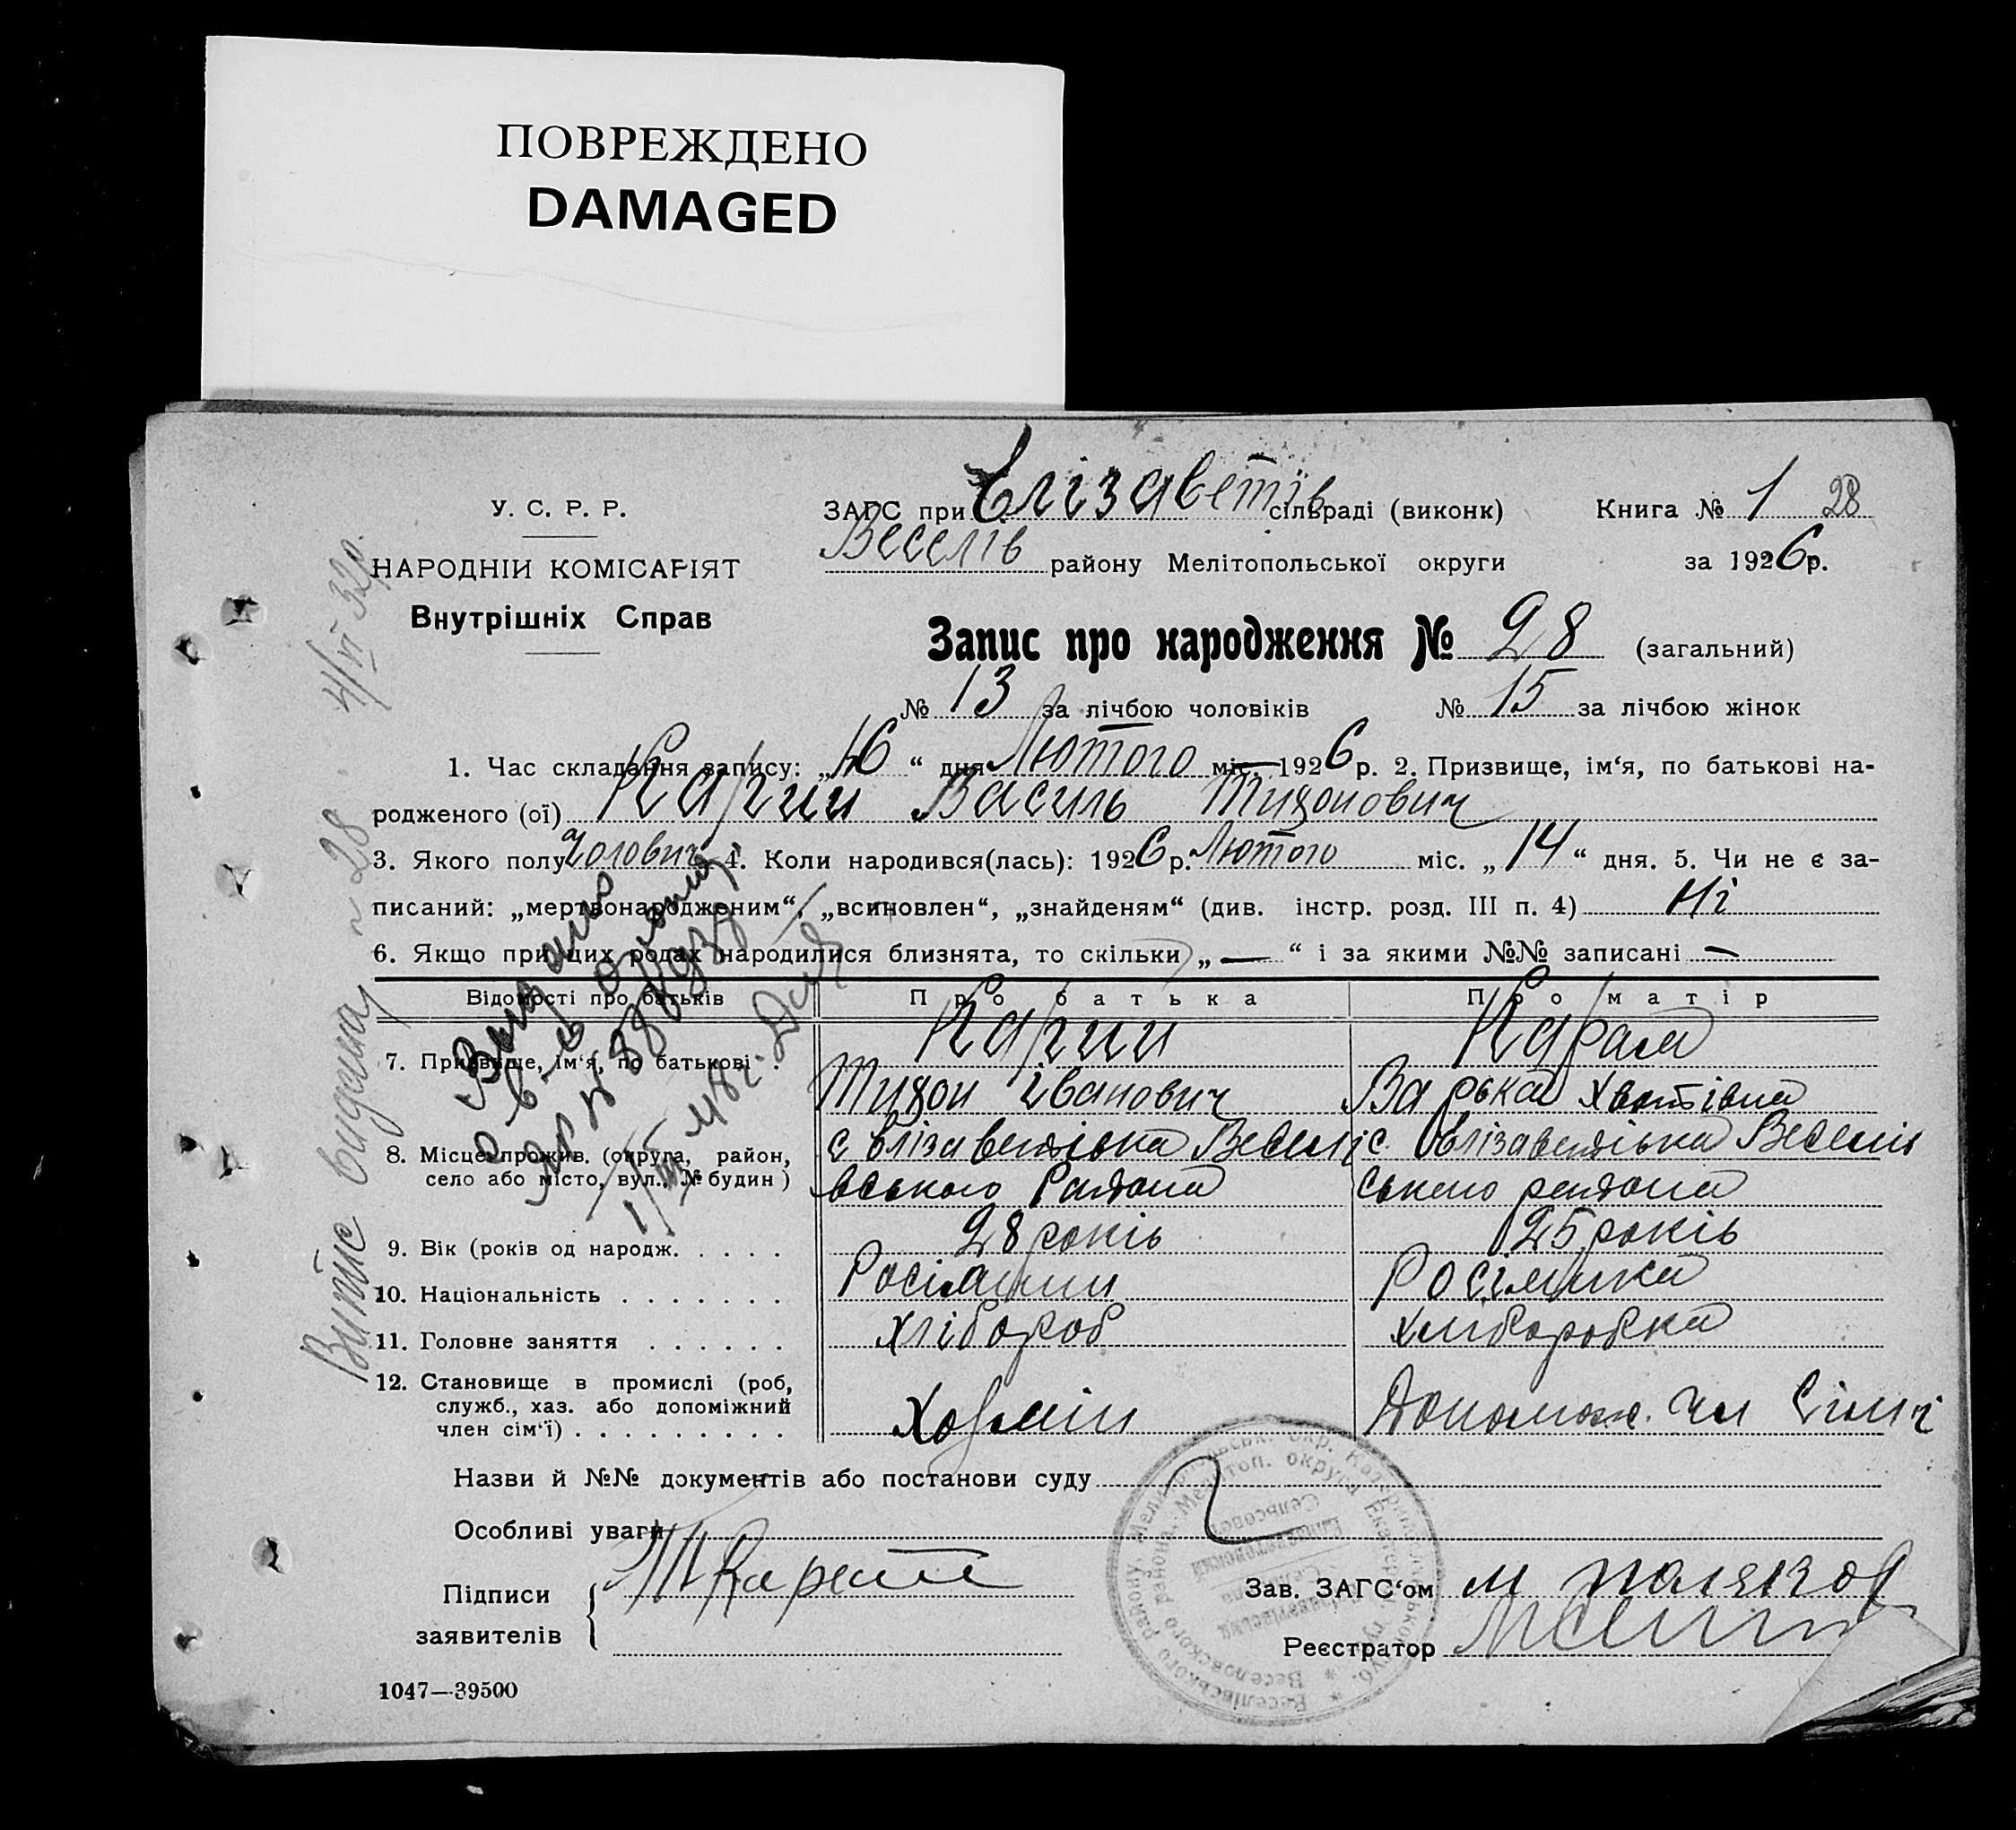 ПОВРЕЖДЕНО
DAMAGED
У. С. Р. Р.
НАРОДНІЙ КОМІСАРІЯТ
Внутрішніх Справ
ЗАГС при Єлізаветів сільраді (виконк) Книга № 1 28
Веселів району Мелітопольської округи за 1926 р.
Запис про народження № 28 (загальний)
№ 13 за лічбою чоловіків № 15 за лічбою жінок
1. Час складання запису: „16“ дня Лютого міс. 1926 р. 2. Призвище, ім‘я, по батькові на-
родженого (ої) Василь Тихонович
3. Якого полу Чолович 4. Коли народився(лась): 1926 р. Лютого міс. „14“ дня. 5. Чи не є за-
писаний: „мертвонародженим“, „всиновлен“, „знайденям“ (див. інстр. розд. III п. 4) Ні
6. Якщо при цих родах народилися близнята, то скільки „—“ і за якими №№ записані —
Відомості про батьків Про батька Про матір
7. Призвище, ім‘я, по батькові .
Тихон Іванович
Варька
8. Місце прожив. (округа, район,
село або місто, вул., № будин)
с Єлізаветівка Веселі
вського Района
с. Єлізаветівка Веселів
ського района
9. Вік (років од народж. . . . . 28 років 25 років
10. Національність . . . . . . . Росіянин Росіянка
11. Головне заняття . . . . . . хлібороб хліборобка
12. Становище в промислі (роб,
служб., хаз. або допоміжний
член сім‘ї) . . . . . . . . . Хозяїн Допомож. чл сімї
Назви й №№ документів або постанови суду
Особливі уваги
Підписи
заявителів
Зав. ЗАГС‘ом
Реєстратор
1047—39500
Витис видана 28
4/VI 32р.